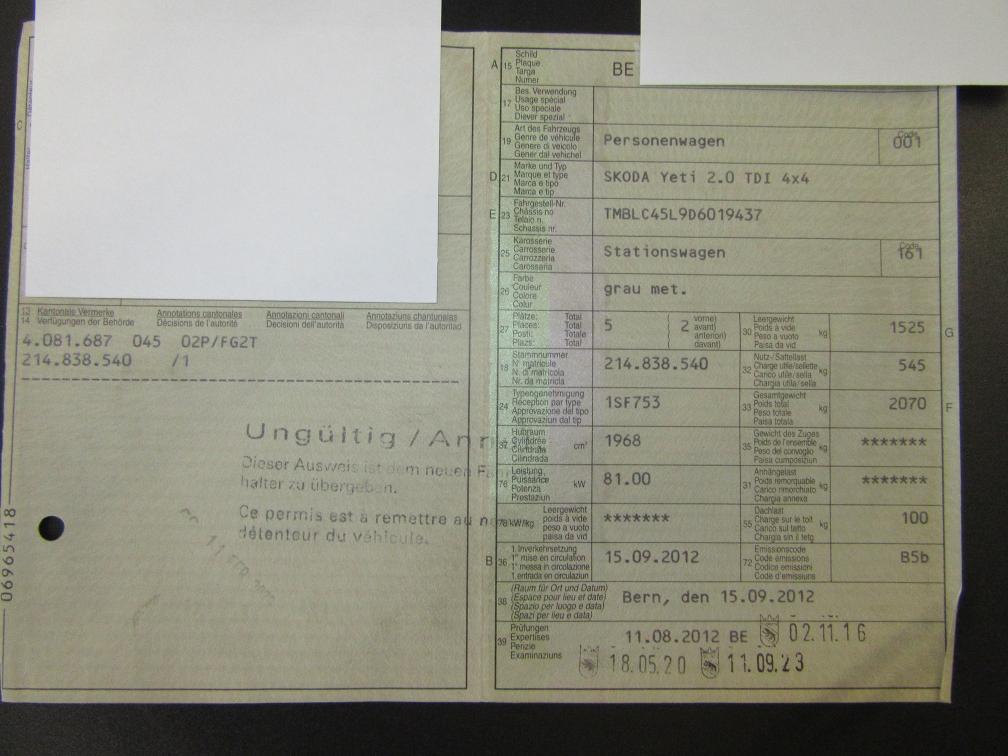 C
13 Kantonale Vermerke Annotations cantonales Annotazioni cantonali Annotaziuns chantunalas
14 Verfügungen der Behörde Décisions de l'autorité Decisioni dell'autorità Disposiziuns da l'autoritad
4.081.687 045 02P/FG2T
214.838.540 /1
Ungültig /
Dieser Ausweis ist dem neuen
halter zu übergeben.
Ce permis est à remettre au
détenteur du véhicule.
06965418
A 15 Schild
Plaque
Targa
Numer
BE
17 Bes. Verwendung
Usage spécial
Uso speciale
Diever spezial
19 Art des Fahrzeugs
Genre de véhicule
Genere di veicolo
Gener dal vehichel
Personenwagen
Code
001
D 21 Marke und Typ
Marque et type
Marca e tipo
Marca e tip
SKODA Yeti 2.0 TDI 4x4
E 23 Fahrgestell-Nr.
Châssis no
Telaio n.
Schassis nr.
TMBLC45L9D6019437
25 Karosserie
Carrosserie
Carrozzeria
Carossaria
Stationswagen
Code
161
26 Farbe
Couleur
Colore
Colur
grau met.
27 Plätze: Total
Places: Total
Posti: Totale
Plazs: Total
5 ( 2 vorne)
avant)
anteriori)
davant)
30 Leergewicht
Poids à vide
Peso a vuoto
Paisa da vid
kg
1525
G
18 Stammnummer
N° matricule
N. di matricola
Nr. da matricla
214.838.540
32 Nutz-/Sattellast
Charge utile/sellette
Carico utile/sella
Chargia utila/sella
kg
545
24 Typengenehmigung
Réception par type
Approvazione del tipo
Approvaziun dal tip
1SF753
33 Gesamtgewicht
Poids total
Peso totale
Paisa totala
kg
2070
F
37 Hubraum
Cylindrée
Cilindrata
Cilindrada
cm³
1968
35 Gewicht des Zuges
Poids de l'ensemble
Peso del convoglio
Paisa cumposiziun
kg
*******
76 Leistung
Puissance
Potenza
Prestaziun
kW
81.00
31 Anhängelast
Poids remorquable
Carico rimorchiato
Chargia annexa
kg
*******
78 kW/kg Leergewicht
poids à vide
peso a vuoto
paisa da vid
*******
55 Dachlast
Charge sur le toit
Carico sul tetto
Chargia sin il tetg
kg
100
B 36 1. Inverkehrsetzung
1re mise en circulation
1a messa in circolazione
1. entrada en circulaziun
15.09.2012
72 Emissionscode
Code émissions
Codice emissioni
Code d'emissiuns
B5b
38 (Raum für Ort und Datum)
(Espace pour lieu et date)
(Spazio per luogo e data)
(Spazi per lieu e data)
Bern, den 15.09.2012
39 Prüfungen
Expertises
Perizie
Examinaziuns
11.08.2012 BE 02.11.16
18.05.20 11.09.23